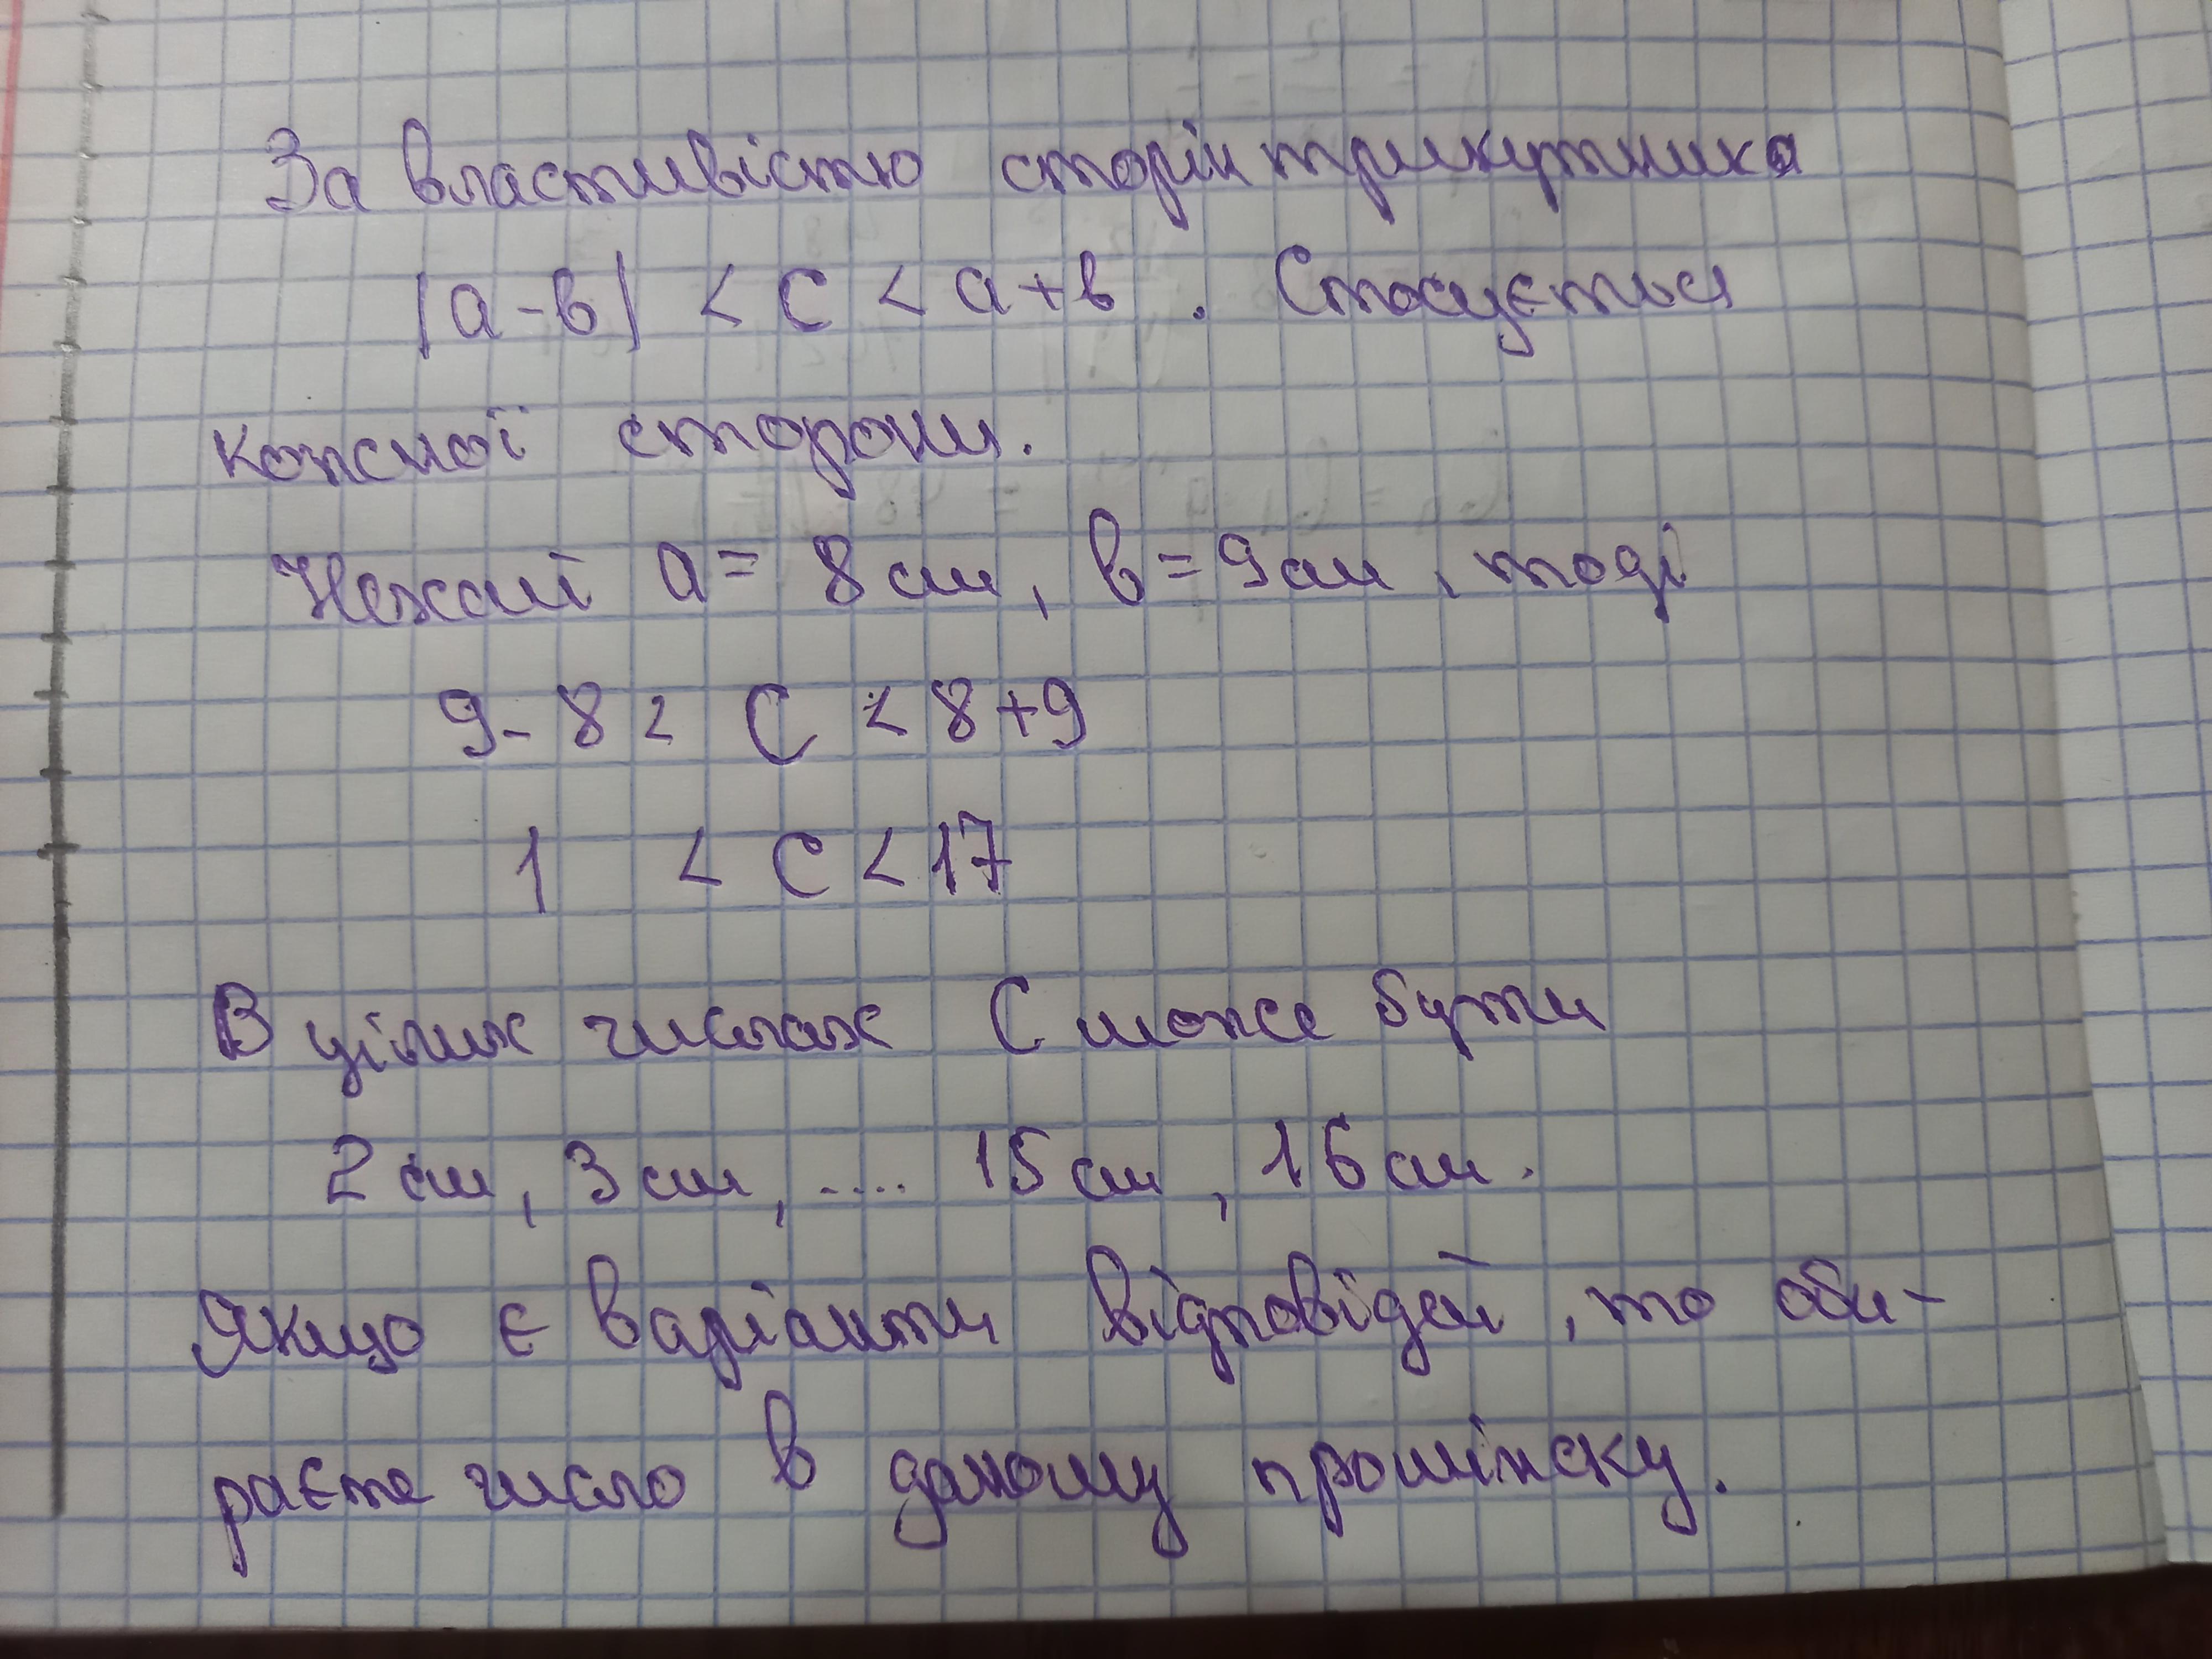 За властивістю сторін трикутника
|a-b| < C < a+b . Стосується
кожної сторони.
Нехай a = 8 см, b = 9 см, тоді
9-8 < C < 8+9
1 < C < 17
В цілих числах C може бути
2 см, 3 см, .... 15 см, 16 см.
Якщо є варіанти відповідей, то оби-
раєте число в даному проміжку.